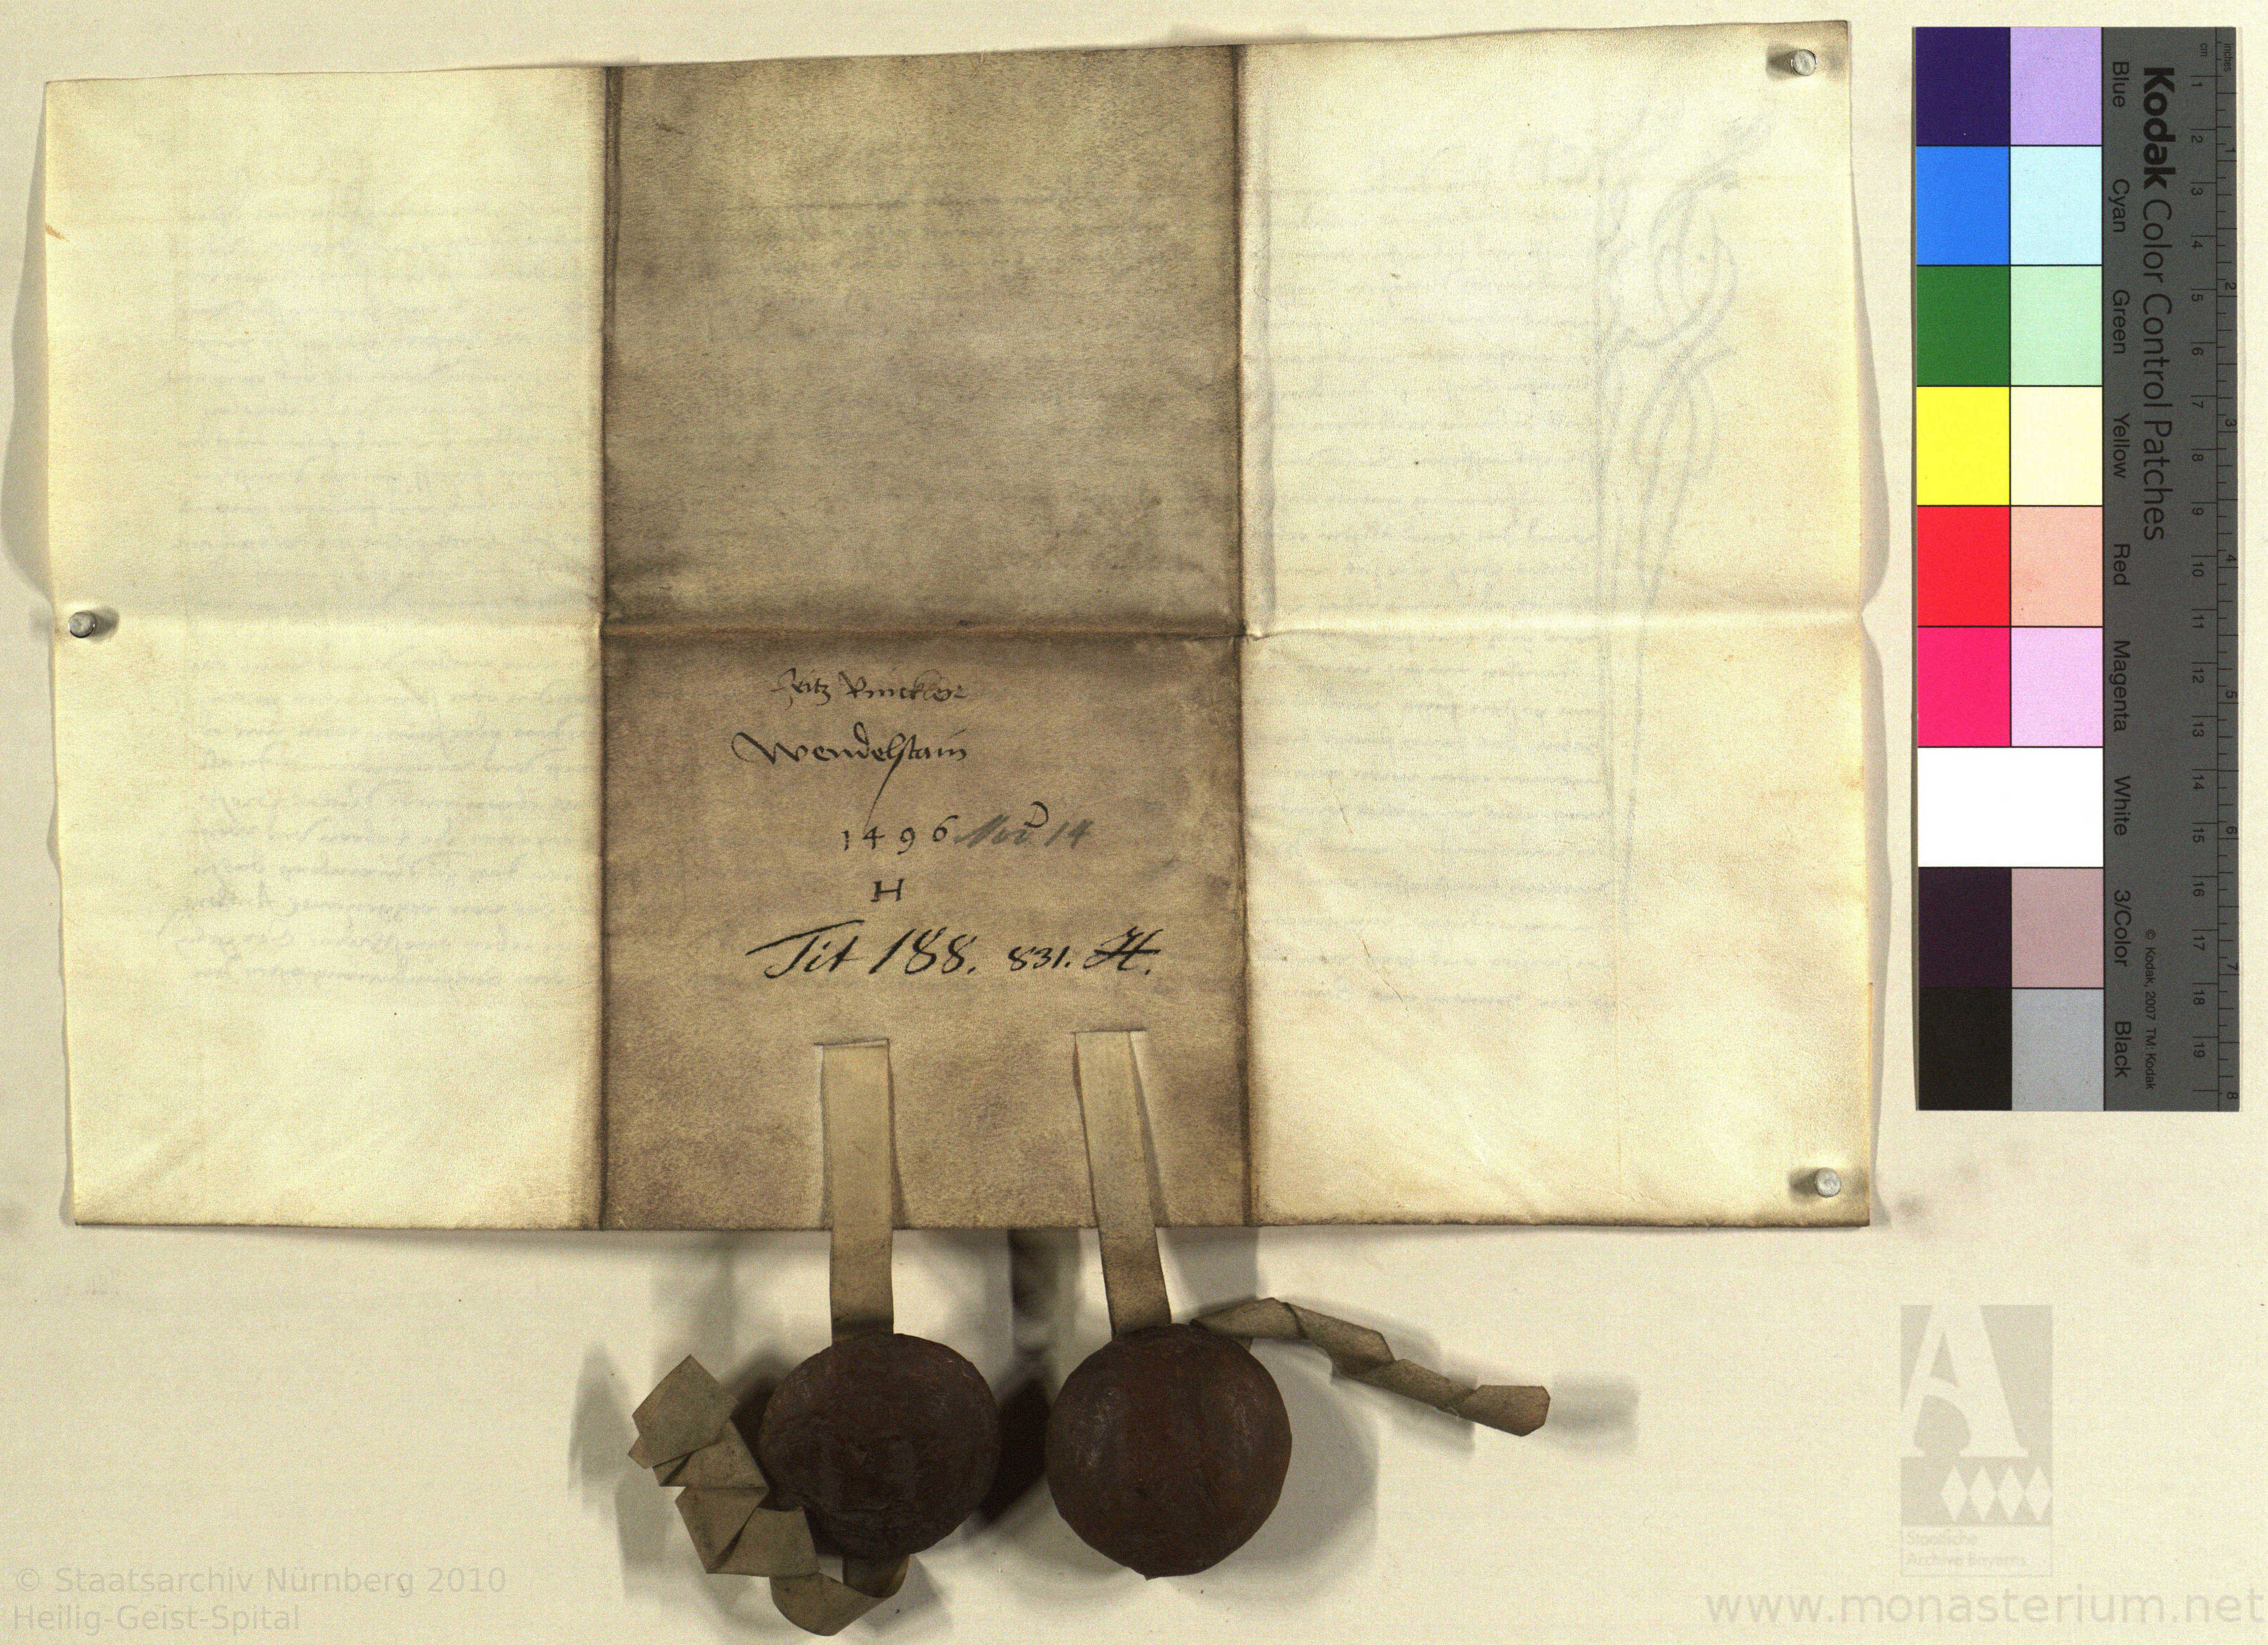 Fritz Kunckler
Wendelstain
1496 Nov 14
H
Tit 188. 831. H.
Kodak Color Control Patches
Blue Cyan Green Yellow Red Magenta White 3/Color Black
© Kodak, 2007 TM: Kodak
inches 1 2 3 4 5 6 7 8
cm 1 2 3 4 5 6 7 8 9 10 11 12 13 14 15 16 17 18 19
Staatliche
Archive Bayerns
© Staatsarchiv Nürnberg 2010
Heilig-Geist-Spital
www.monasterium.net